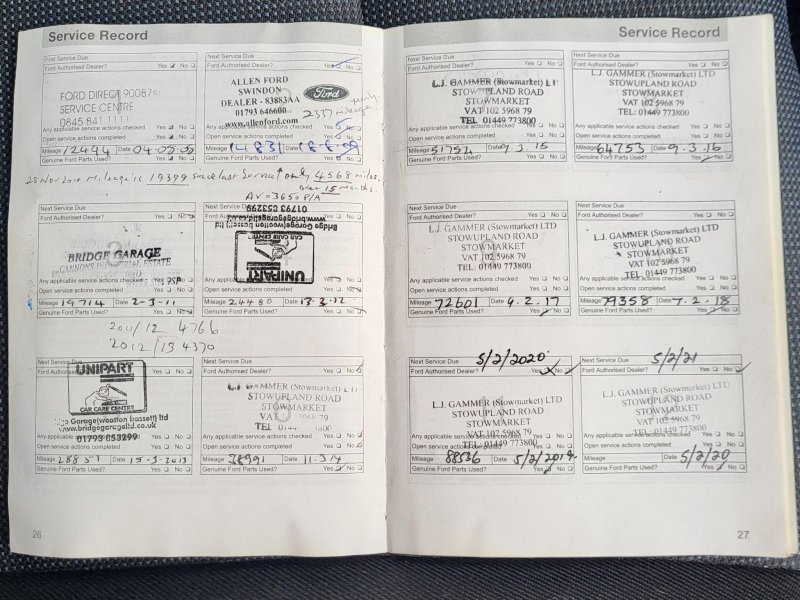 Service Record
First Service Due
Ford Authorised Dealer? Yes No
FORD DIRECT
SERVICE CENTRE
0845 841 1111
Any applicable service actions checked Yes No
Open service actions completed Yes No
Mileage 12494 Date
Genuine Ford Parts Used? Yes No
Next Service Due
Ford Authorised Dealer? Yes No
ALLEN FORD
SWINDON
DEALER - 83883AA
01793 646600
www.allenford.com
Ford
2337 mileage
Any applicable service actions checked Yes No
Open service actions completed Yes No
Mileage 14831 Date 18-8-09
Genuine Ford Parts Used? Yes No
28 Nov 2010 Mileage is 19399 since last service only 4568 miles.
over 15 months.
AV = 3650 P/A
Next Service Due
Ford Authorised Dealer? Yes No
BRIDGE GARAGE
CANNONS INDUSTRIAL ESTATE
Any applicable service actions checked Yes No
Open service actions completed Yes No
Mileage 19714 Date 2-3-11
Genuine Ford Parts Used? Yes No
Next Service Due
Ford Authorised Dealer? Yes No
UNIPART
CAR CARE CENTRE
Bridge Garage(wootton bassett) ltd
www.bridgegarageltd.co.uk
01793 853299
Open service actions completed Yes No
Mileage 24480 Date 13.3.12
Genuine Ford Parts Used? Yes No
2011/12 4766
2012/13 4370
Next Service Due
Ford Authorised Dealer? Yes No
UNIPART
CAR CARE CENTRE
Garage(wootton bassett) ltd
www.bridgegarageltd.co.uk
01793 853299
Any applicable service actions checked Yes No
Open service actions completed Yes No
Mileage 28851 Date 15-3-2013
Genuine Ford Parts Used? Yes No
Next Service Due
Ford Authorised Dealer? Yes No
L.J. GAMMER (Stowmarket)
STOWUPLAND ROAD
STOWMARKET
VAT 5968 79
TEL
Any applicable service actions checked Yes No
Open service actions completed Yes No
Mileage Date 11.3.14
Genuine Ford Parts Used? Yes No
26
Service Record
Next Service Due
Ford Authorised Dealer? Yes No
L.J. GAMMER (Stowmarket)
STOWUPLAND ROAD
STOWMARKET
VAT 102 5968 79
TEL 01449 773800
Any applicable service actions checked Yes No
Open service actions completed Yes No
Mileage 51752 Date 9.3.15
Genuine Ford Parts Used? Yes No
Next Service Due
Ford Authorised Dealer? Yes No
L.J. GAMMER (Stowmarket) LTD
STOWUPLAND ROAD
STOWMARKET
VAT 102 5968 79
TEL: 01449 773800
Any applicable service actions checked Yes No
Open service actions completed Yes No
Mileage 64753 Date 9.3.16
Genuine Ford Parts Used? Yes No
Next Service Due
Ford Authorised Dealer? Yes No
L.J. GAMMER (Stowmarket) LTD
STOWUPLAND ROAD
STOWMARKET
VAT 102 5968 79
TEL: 01449 773800
Any applicable service actions checked Yes No
Open service actions completed Yes No
Mileage 72601 Date 9.2.17
Genuine Ford Parts Used? Yes No
Next Service Due
Ford Authorised Dealer? Yes No
L.J. GAMMER (Stowmarket) LTD
STOWUPLAND ROAD
STOWMARKET
VAT 102 5968 79
TEL: 01449 773800
Any applicable service actions checked Yes No
Open service actions completed Yes No
Mileage 79358 Date 7.2.18
Genuine Ford Parts Used? Yes No
Next Service Due 5/2/2020
Ford Authorised Dealer? Yes No
L.J. GAMMER (Stowmarket) LTD
STOWUPLAND ROAD
STOWMARKET
VAT 102 5968 79
TEL: 01449 773800
Any applicable service actions checked Yes No
Open service actions completed Yes No
Mileage 88536 Date 5/2/2019
Genuine Ford Parts Used? Yes No
Next Service Due 5/2/21
Ford Authorised Dealer? Yes No
L.J. GAMMER (Stowmarket) LTD
STOWUPLAND ROAD
STOWMARKET
VAT 102 5968 79
TEL: 01449 773800
Any applicable service actions checked Yes No
Open service actions completed Yes No
Mileage Date 5/2/20
Genuine Ford Parts Used? Yes No
27